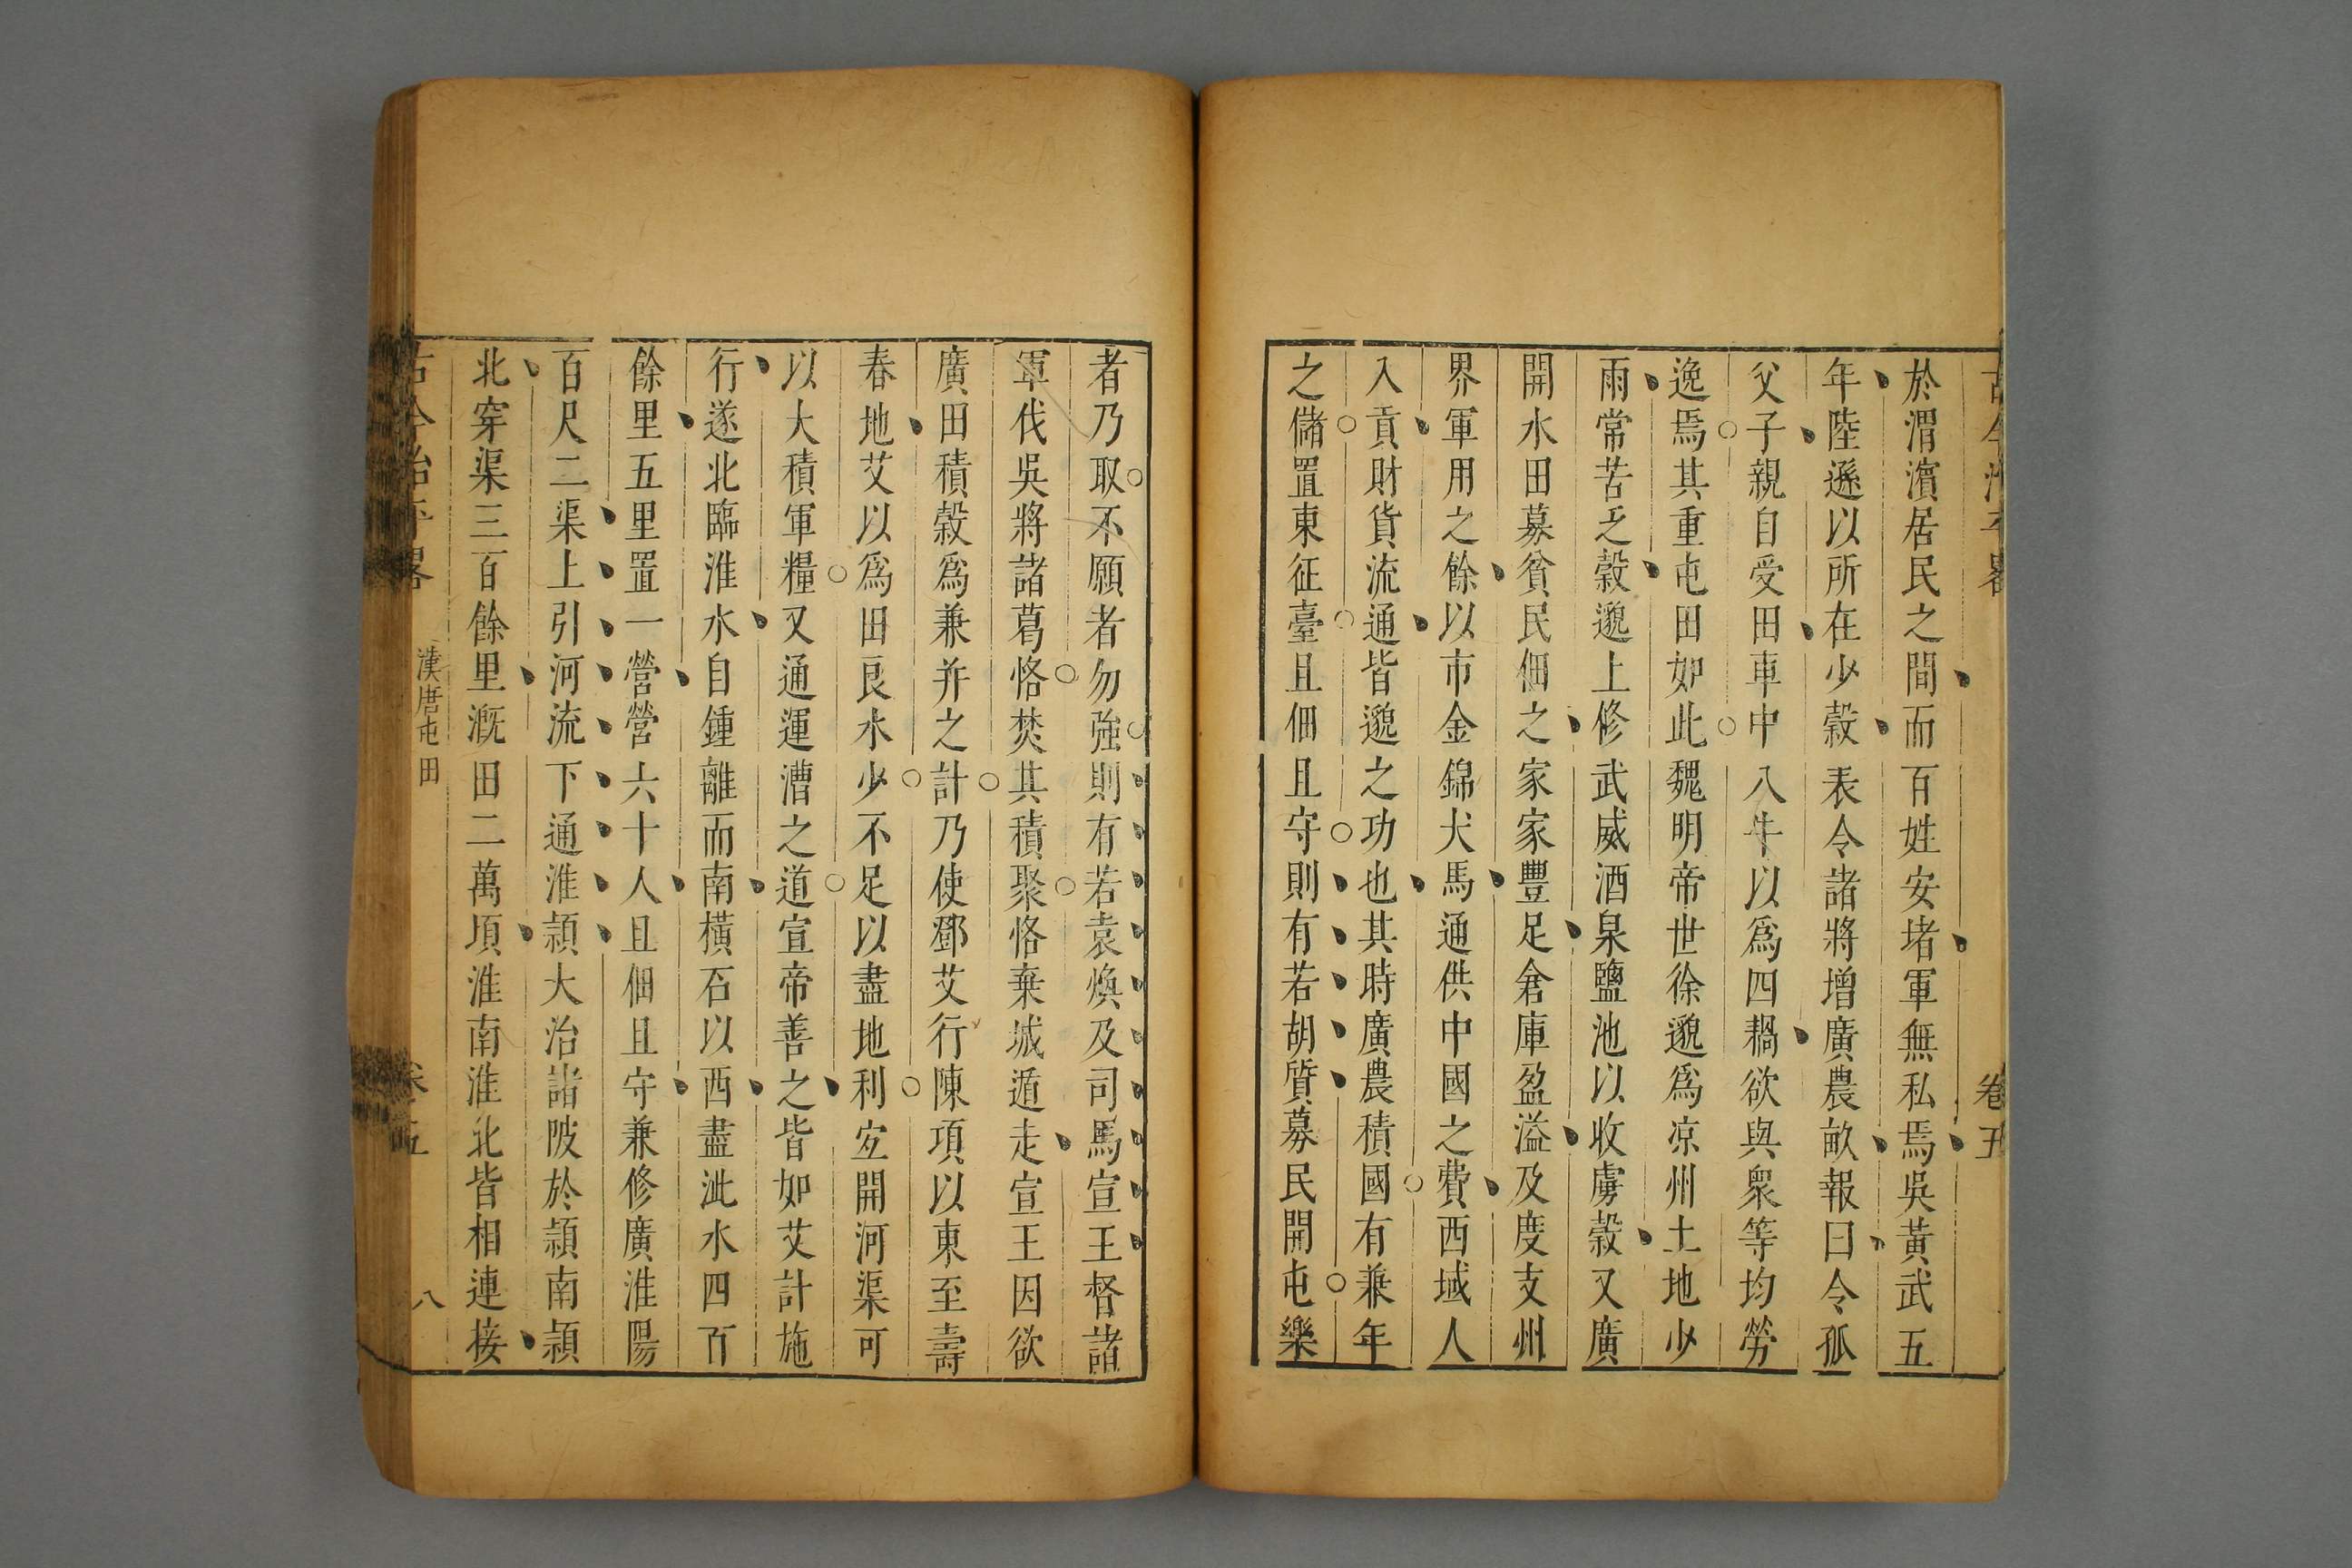 於渭濱居民之間而百姓安堵軍無私焉吳黃武五
年陸遜以所在少穀表令諸將增廣農畝報曰令孤
父子親自受田車中八牛以爲四耦欲與衆等均勞
逸焉其重屯田如此魏明帝世徐邈爲凉州土地少
雨常苦乏穀邈上修武威酒泉鹽池以收虜穀又廣
開水田募貧民佃之家家豐足倉庫盈溢及度支州
界軍用之餘以市金錦犬馬通供中國之費西域人
入貢財貨流通皆邈之功也其時廣農積國有兼年
之儲置東征臺且佃且守則有若胡質募民開屯樂
者乃取不願者勿強則有若袁煥及司馬宣王督諸
軍伐吳將諸葛恪焚其積聚恪棄城遁走宣王因欲
廣田積穀爲兼并之計乃使鄧艾行陳項以東至壽
春地艾以爲田良水少不足以盡地利宐開河渠可
以大積軍糧又通運漕之道宣帝善之皆如艾計施
行遂北臨淮水自鍾離而南橫石以西盡沘水四百
餘里五里置一營營六十人且佃且守兼修廣淮陽
百尺二渠上引河流下通淮潁大治諸陂於潁南潁
北穿渠三百餘里漑田二萬頃淮南淮北皆相連接
古今治平畧 漢唐屯田 卷五 八